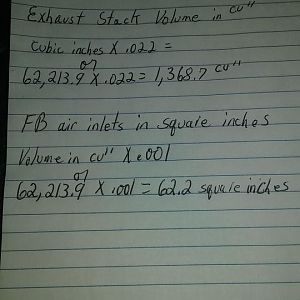 Exhaust Stack Volume in cu"
Cubic inches X .022 =
or
62,213.9 X .022 = 1,368.7 cu"
FB air inlets in square inches
Volume in cu" X .001
or
62,213.9 X .001 = 62.2 square inches